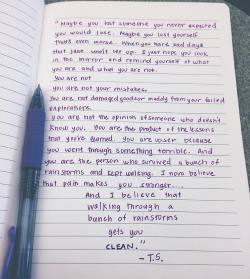 "Maybe you lost someone you never expected
you would lose. Maybe you lost yourself.
That's even worse. When you have bad days
that just won't let up. I just hope you look
in the mirror and remind yourself of what
you are and what you are not.
You are not
you are not your mistakes.
You are not damaged goods or muddy from your failed
explorations.
You are not the opinion of someone who doesn't
know you. You are the product of the lessons
that you've learned. You are wiser because
you went through something terrible. And
you are the person who survived a bunch of
rainstorms and kept walking. I now believe
that pain makes you stronger...
And I believe that
walking through a
bunch of rainstorms
gets you
CLEAN."
- T.S.